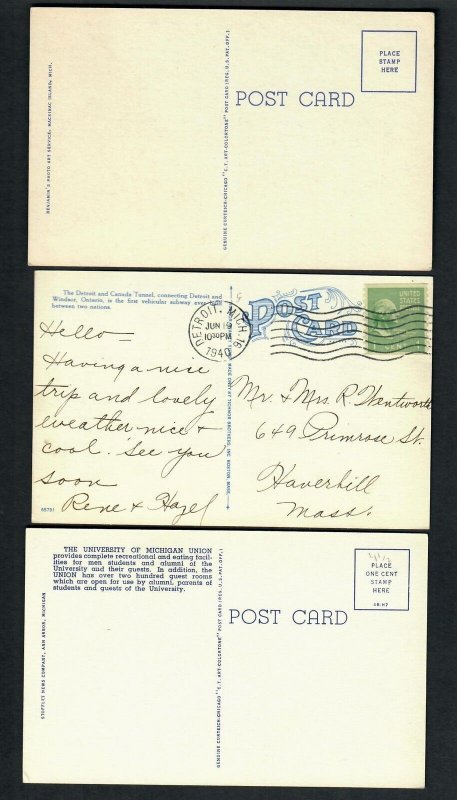 BENJAMIN'S PHOTO ART SERVICE, MACKINAC ISLAND, MICH.
GENUINE CURTEICH-CHICAGO "C.T. ART-COLORTONE" POST CARD (REG. U.S. PAT. OFF.)
POST CARD
PLACE
STAMP
HERE
The Detroit and Canada Tunnel, connecting Detroit and
Windsor, Ontario, is the first vehicular subway ever built
between two nations.
Hello —
Having a nice
trip and lovely
weather nice +
cool. See you
soon
Rene + Hazel
65791
MADE ONLY BY TICHNOR BROTHERS, INC. BOSTON, MASS.
POST
CARD
DETROIT, MICH. 16
JUN 19
10 30 PM
1940
UNITED
STATES
Mr. & Mrs R. Wentworth
649 Primrose St.
Haverhill
Mass.
THE UNIVERSITY OF MICHIGAN UNION
provides complete recreational and eating facil-
ities for men students and alumni of the
University and their guests. In addition, the
UNION has over two hundred guest rooms
which are open for use by alumni, parents of
students and guests of the University.
STOFFLET NEWS COMPANY, ANN ARBOR, MICHIGAN
GENUINE CURTEICH-CHICAGO "C.T. ART-COLORTONE" POST CARD (REG. U.S. PAT. OFF.)
POST CARD
PLACE
ONE CENT
STAMP
HERE
1B-H7